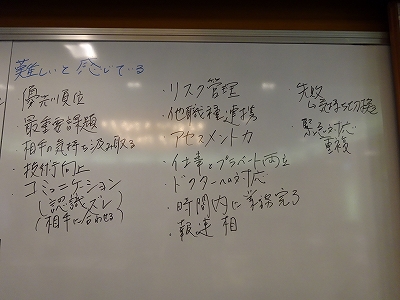 難しいと感じている
・優先順位
・最重要課題
・相手の気持ち汲み取る
・技術向上
・コミュニケーション
(認識ズレ)
(相手に合わせる)
・リスク管理
・他職種連携
・アセスメント力
・仕事とプライベート両立
・ドクターへの対応
・時間内に業務完了
・報連相
・失敗
気持ち切換
・緊急対応
重複